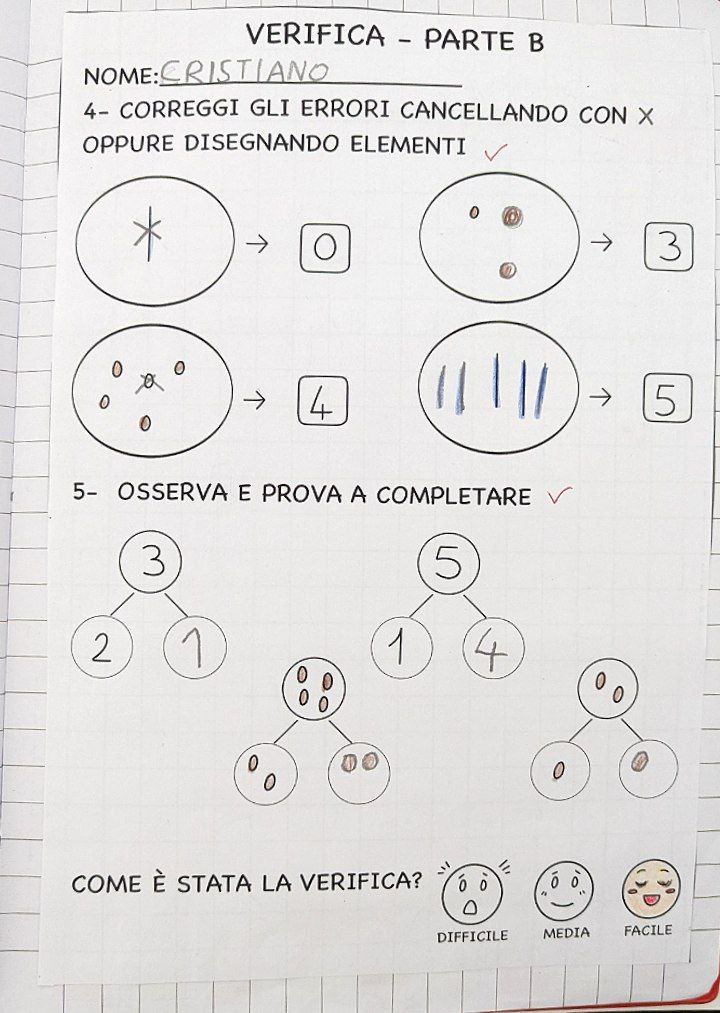 VERIFICA - PARTE B
NOME: CRISTIANO
4- CORREGGI GLI ERRORI CANCELLANDO CON X
OPPURE DISEGNANDO ELEMENTI
→ 0
→ 3
→ 4
→ 5
5- OSSERVA E PROVA A COMPLETARE
3 5
2 1 1 4
COME È STATA LA VERIFICA?
DIFFICILE MEDIA FACILE